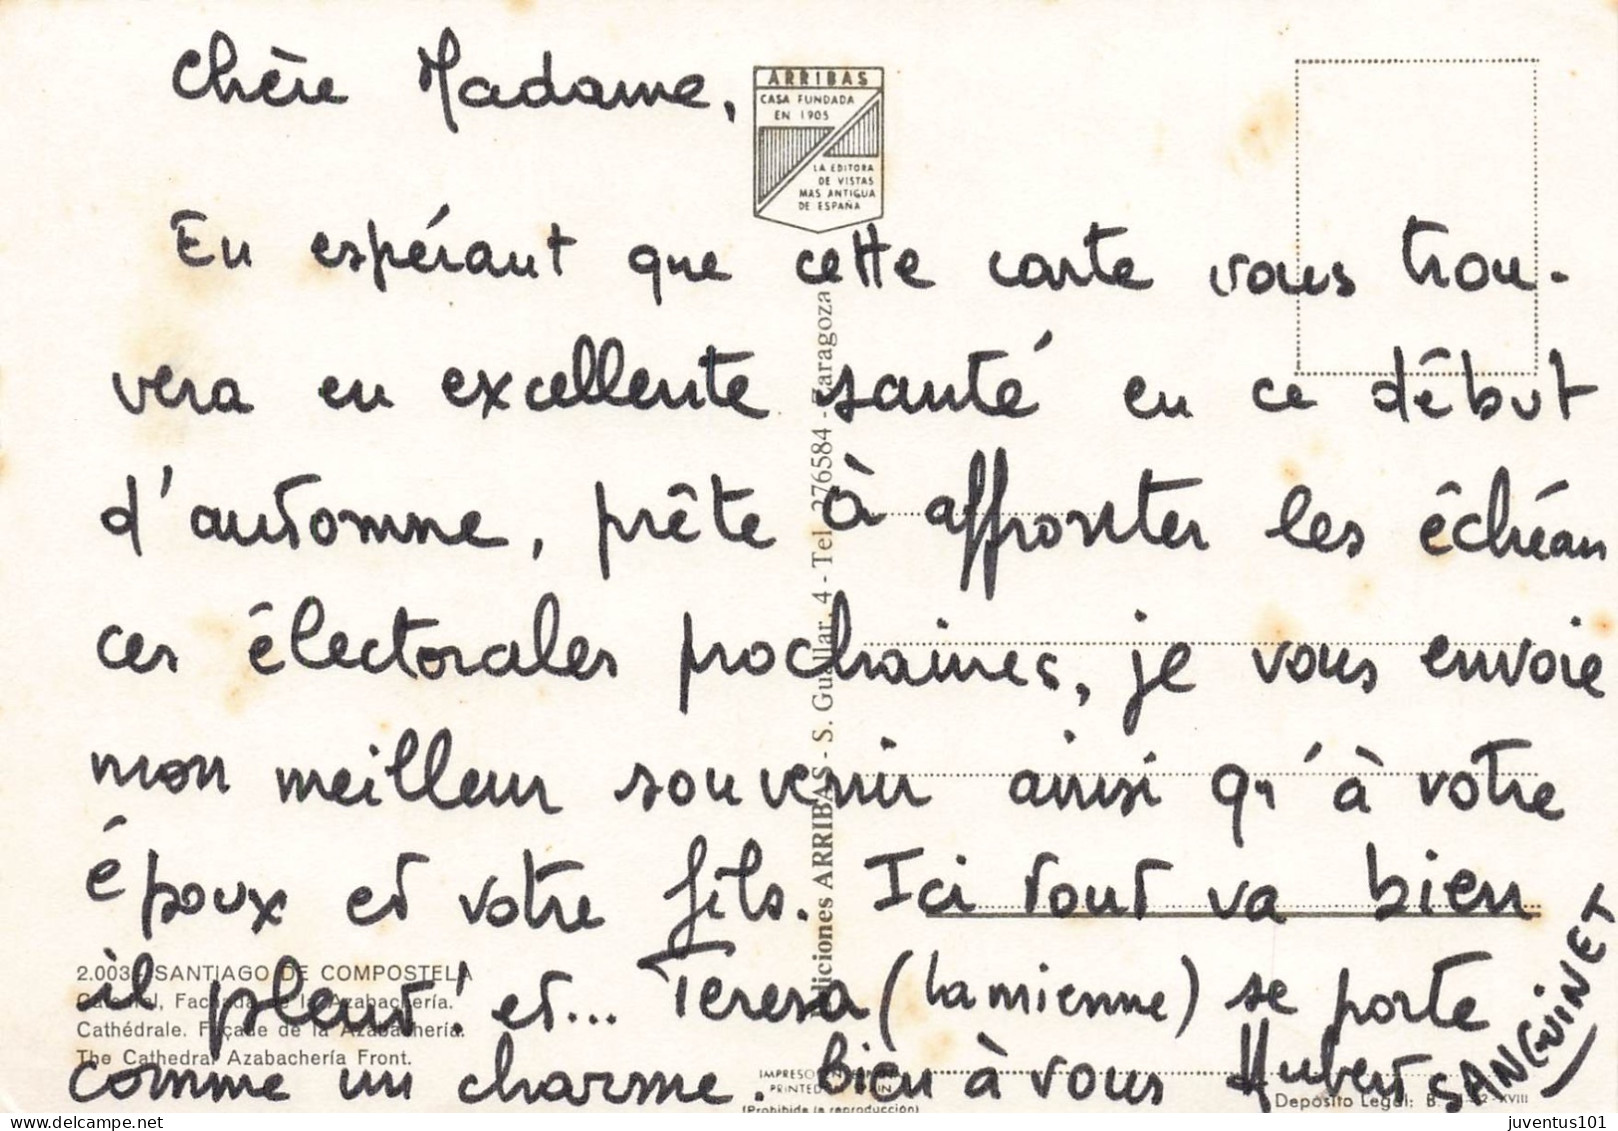 Chère Madame,
ARRIBAS
CASA FUNDADA
EN 1905
LA EDITORA
DE VISTAS
MAS ANTIGUA
DE ESPAÑA
En espérant que cette carte vous trou-
vera en excellente santé en ce début
d'automne, prête à affronter les échéan
ces électorales prochaines, je vous envoie
mon meilleur souvenir ainsi qu'à votre
époux et votre fils. Ici tout va bien
il pleut! et... Teresa (la mienne) se porte
comme un charme. bien à vous Hubert SANGUINET
diciones ARRIBAS - S. Guallar, 4 - Tel. 276584 - Zaragoza
2.003.- SANTIAGO DE COMPOSTELA
Catedral, Fachada de la Azabachería.
Cathédrale. Façade de la Azabachería.
The Cathedral Azabachería Front.
IMPRESO EN ESPAÑA
PRINTED IN SPAIN
(Prohibida la reproducción)
Depósito Legal: B. -XVIII
juventus101